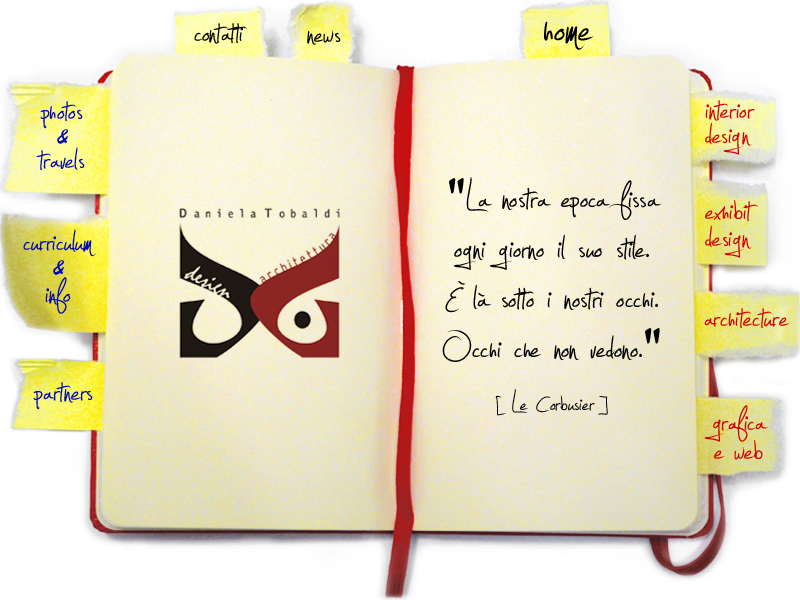 contatti
news
home
photos
&
travels
curriculum
&
info
partners
Daniela Tobaldi
design
architettura
"La nostra epoca fissa
ogni giorno il suo stile.
È là sotto i nostri occhi.
Occhi che non vedono."
[ Le Corbusier ]
interior
design
exhibit
design
architecture
grafica
e web